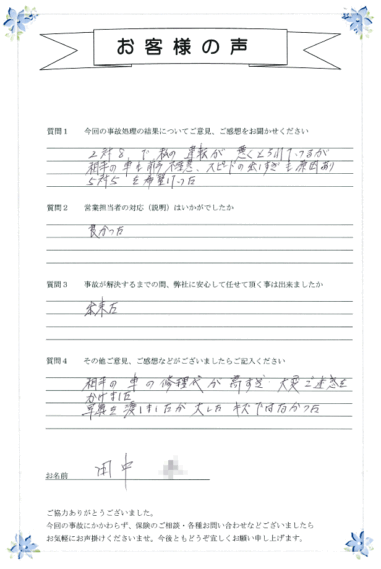 お客様の声
質問1 今回の事故処理の結果についてご意見、ご感想をお聞かせください
2対8で私の運転が悪くとられているが
相手の車も前方不注意、スピードの出しすぎも原因あり
5対5を希望していた
質問2 営業担当者の対応(説明)はいかがでしたか
良かった
質問3 事故が解決するまでの間、弊社に安心して任せて頂く事は出来ましたか
出来た
質問4 その他ご意見、ご感想などがございましたらご記入ください
相手の車の修理代が高すぎ 大変ご迷惑を
かけました
写真を渡しましたが大したキズではなかった
お名前 田中
ご協力ありがとうございました。
今回の事故にかかわらず、保険のご相談・各種お問い合わせなどございましたら
お気軽にお声掛けくださいませ。今後ともどうぞ宜しくお願い申し上げます。